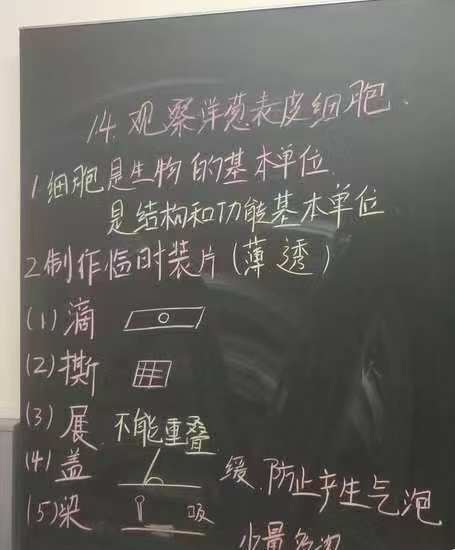 14. 观察洋葱表皮细胞.
1.细胞是生物的基本单位.
是结构和功能基本单位
2.制作临时装片(薄透)
(1)滴
(2)撕
(3)展 不能重叠
(4)盖 缓.防止产生气泡
(5)梁 吸
少量多次